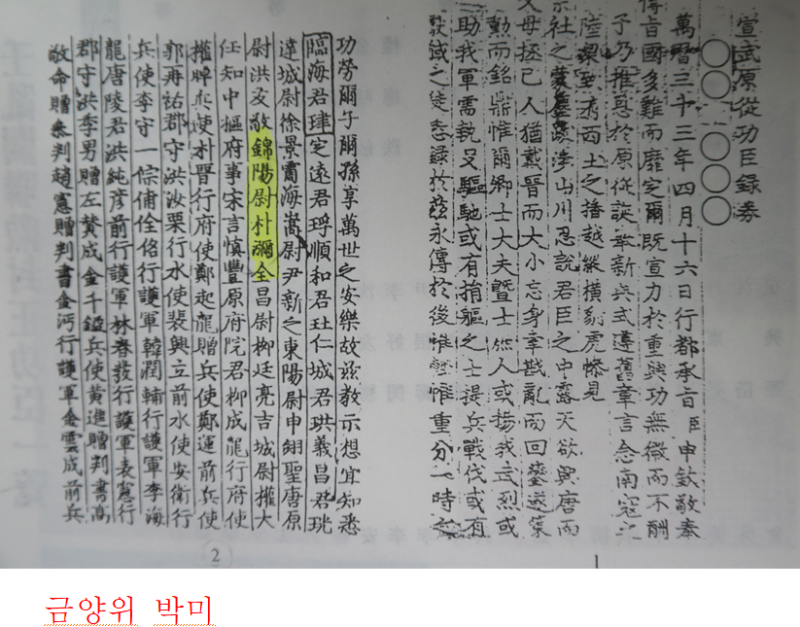 宣武原從功臣錄券
〇〇〇〇〇
萬曆三十三年四月十六日行都承旨臣申欽敬奉
傳旨國多難而靡定爾既宣力於重興功無微而不酬
予乃推恩於原從誕举新典式遵舊章言念南寇之
陸梁致有西土之播越縱橫豺虎慘見
宗社之蒙塵跋涉山川忍說君臣之中露天欲興唐而
父母拯己人猶戴晉而大小忘身幸戡亂而回鑾遂策
勳而銘鼎惟爾卿士大夫曁士庶人或揚我武烈或
助我軍需執殳驅馳或有捐軀之士提兵戰伐或有
鉞之徒悉錄於茲永傳於後惟惟重分一時之
1
功勞爾子爾孫享萬世之安樂故玆教示想宜知悉
臨海君珒定遠君琈順和君仁城君珙義昌君珖
達城尉徐景霌海嵩尉尹新之東陽尉申翊聖唐原
尉洪友敬錦陽尉朴瀰全昌尉柳廷亮吉城尉權大
任知中樞府事宋言愼豐原府院君柳成龍行府使
權晫兵使朴晋行府使鄭起龍贈兵使鄭運前兵使
郭再祐郡守洪汝栗行水使裴興立前水使安衛行
兵使李守一宗佺佲行護軍韓潤輔行護軍李海
龍唐陵君洪純彦前行護軍林春發行護軍表憲行
郡守洪季男贈左贊成金千鎰兵使黃進贈判書高
敬命贈參判趙憲贈判書金沔行護軍金雲成前兵
2
금양위 박미